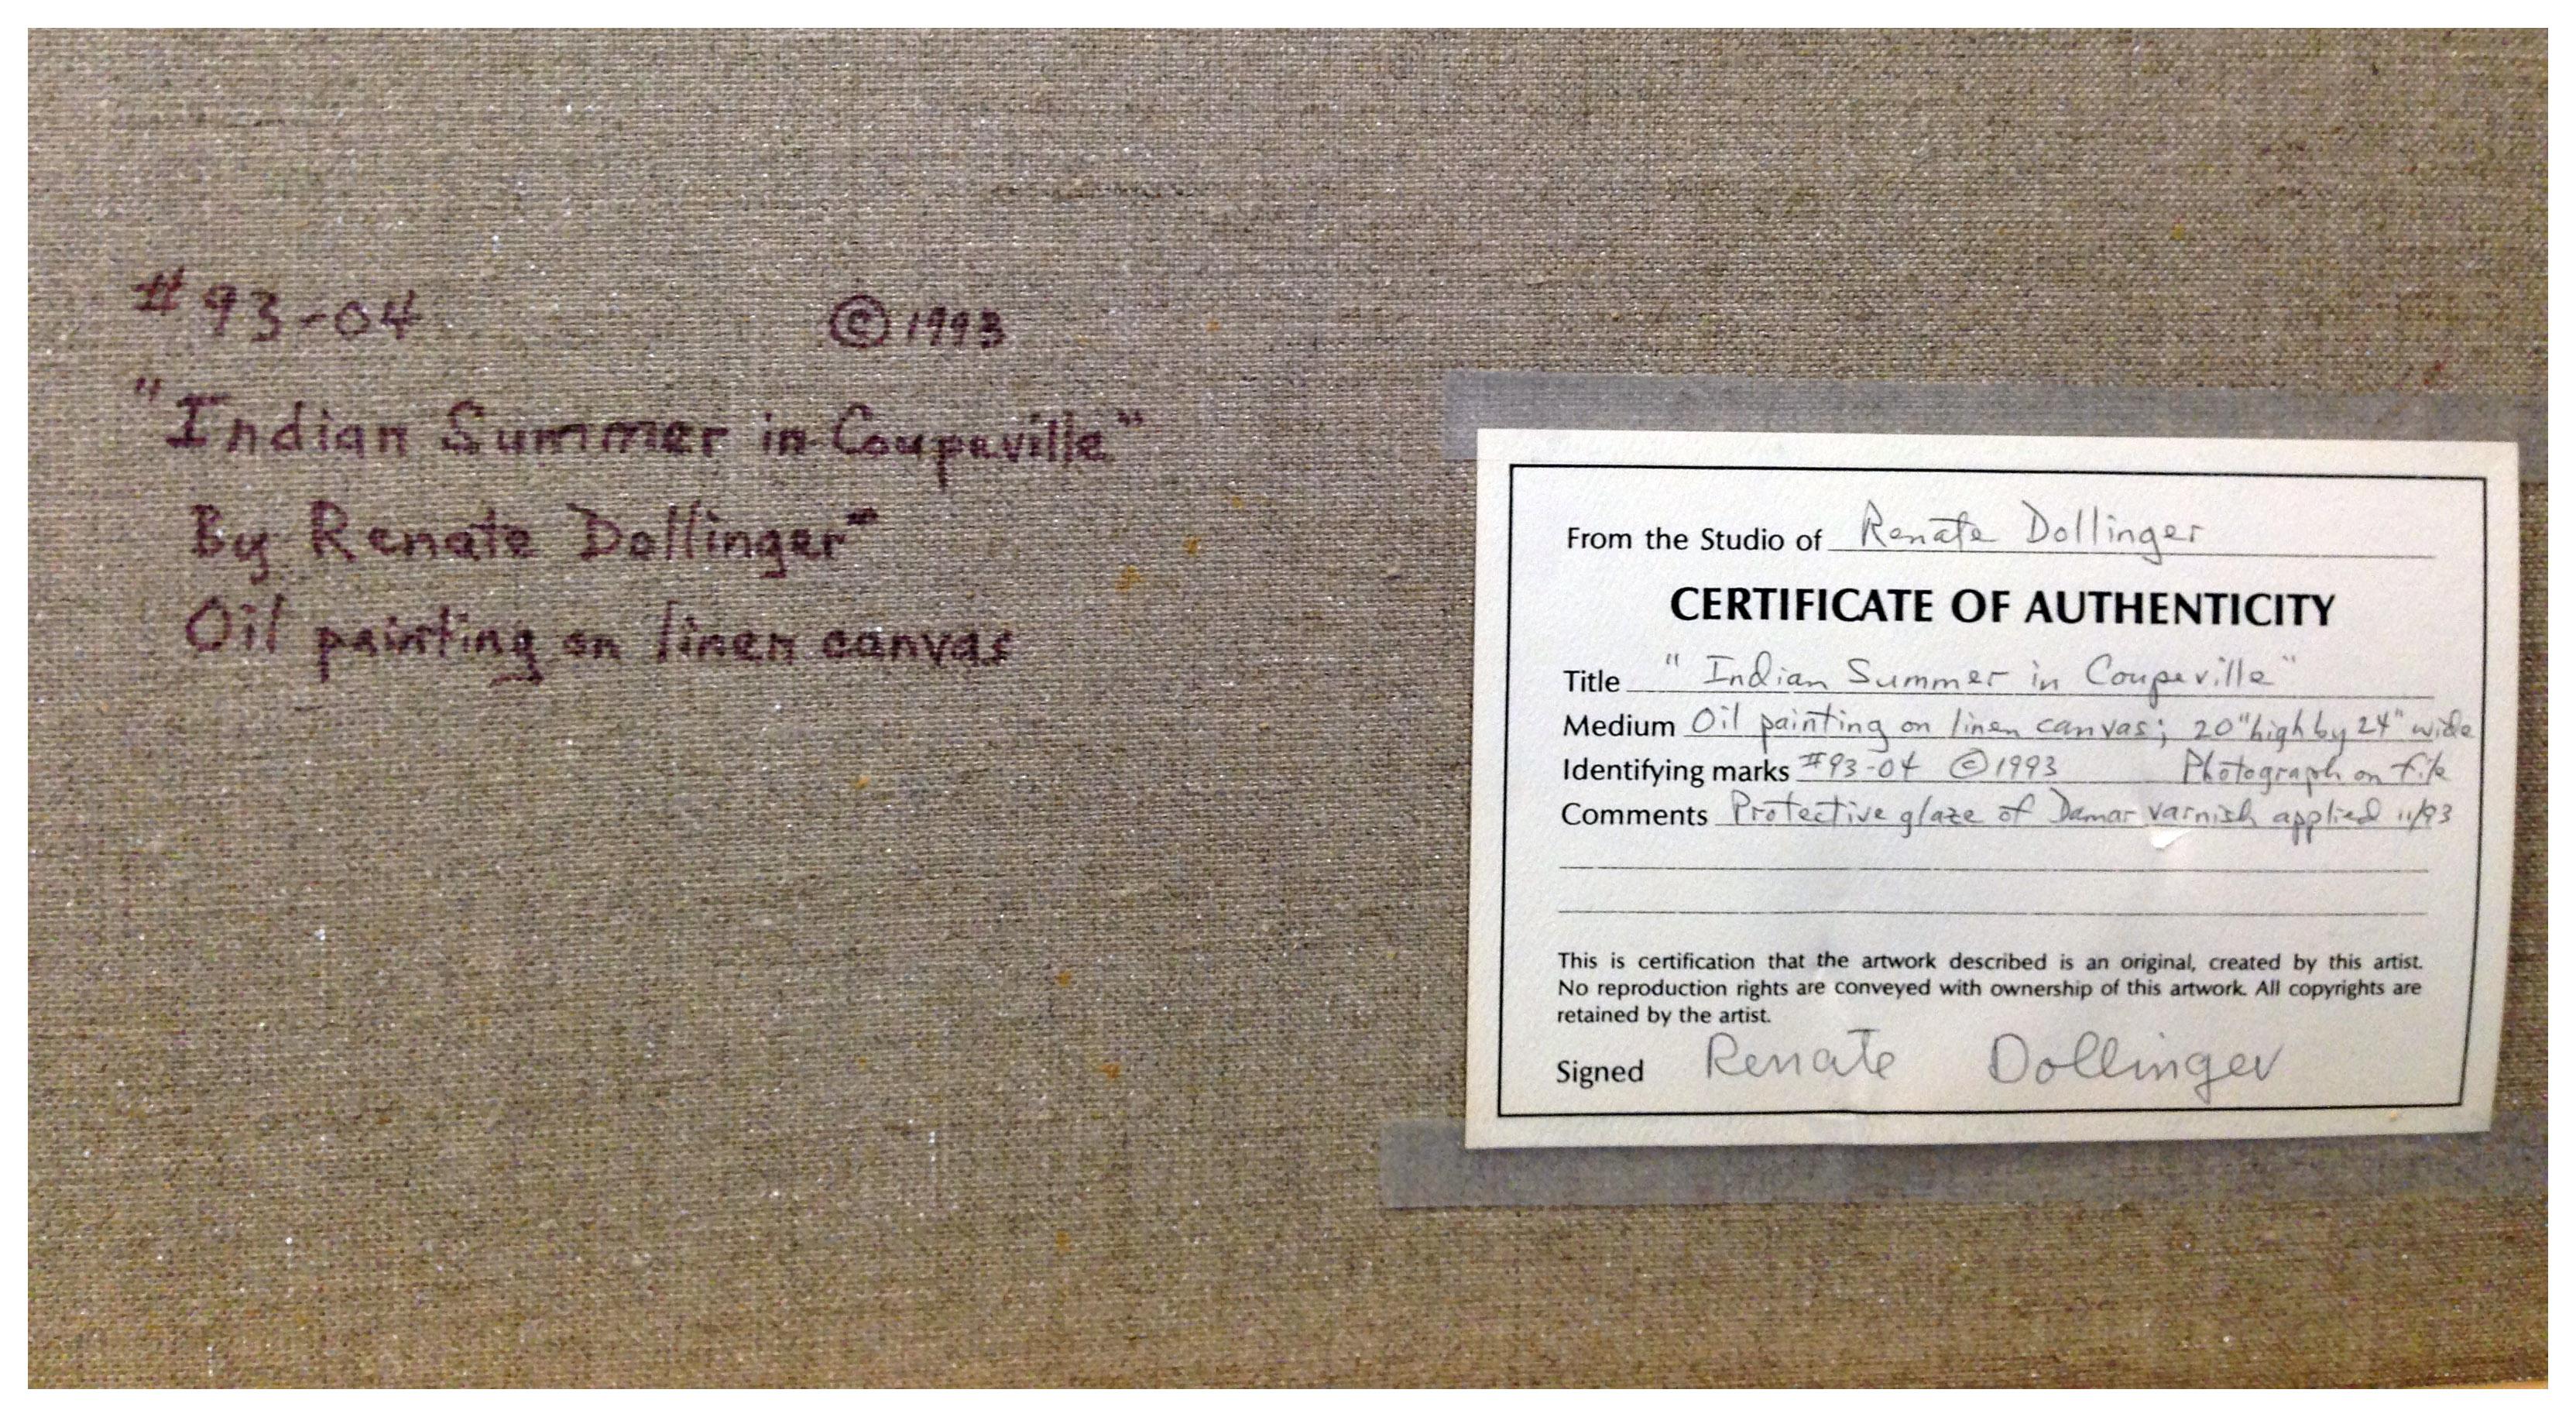 # 93-04 © 1993
"Indian Summer in Coupeville"
By Renate Dollinger
Oil painting on linen canvas
From the Studio of Renate Dollinger
CERTIFICATE OF AUTHENTICITY
Title "Indian Summer in Coupeville"
Medium Oil painting on linen canvas; 20" high by 24" wide
Identifying marks #93-04 © 1993 Photograph on file
Comments Protective glaze of Damar varnish applied 11/93
This is certification that the artwork described is an original, created by this artist.
No reproduction rights are conveyed with ownership of this artwork. All copyrights are
retained by the artist.
Signed Renate Dollinger